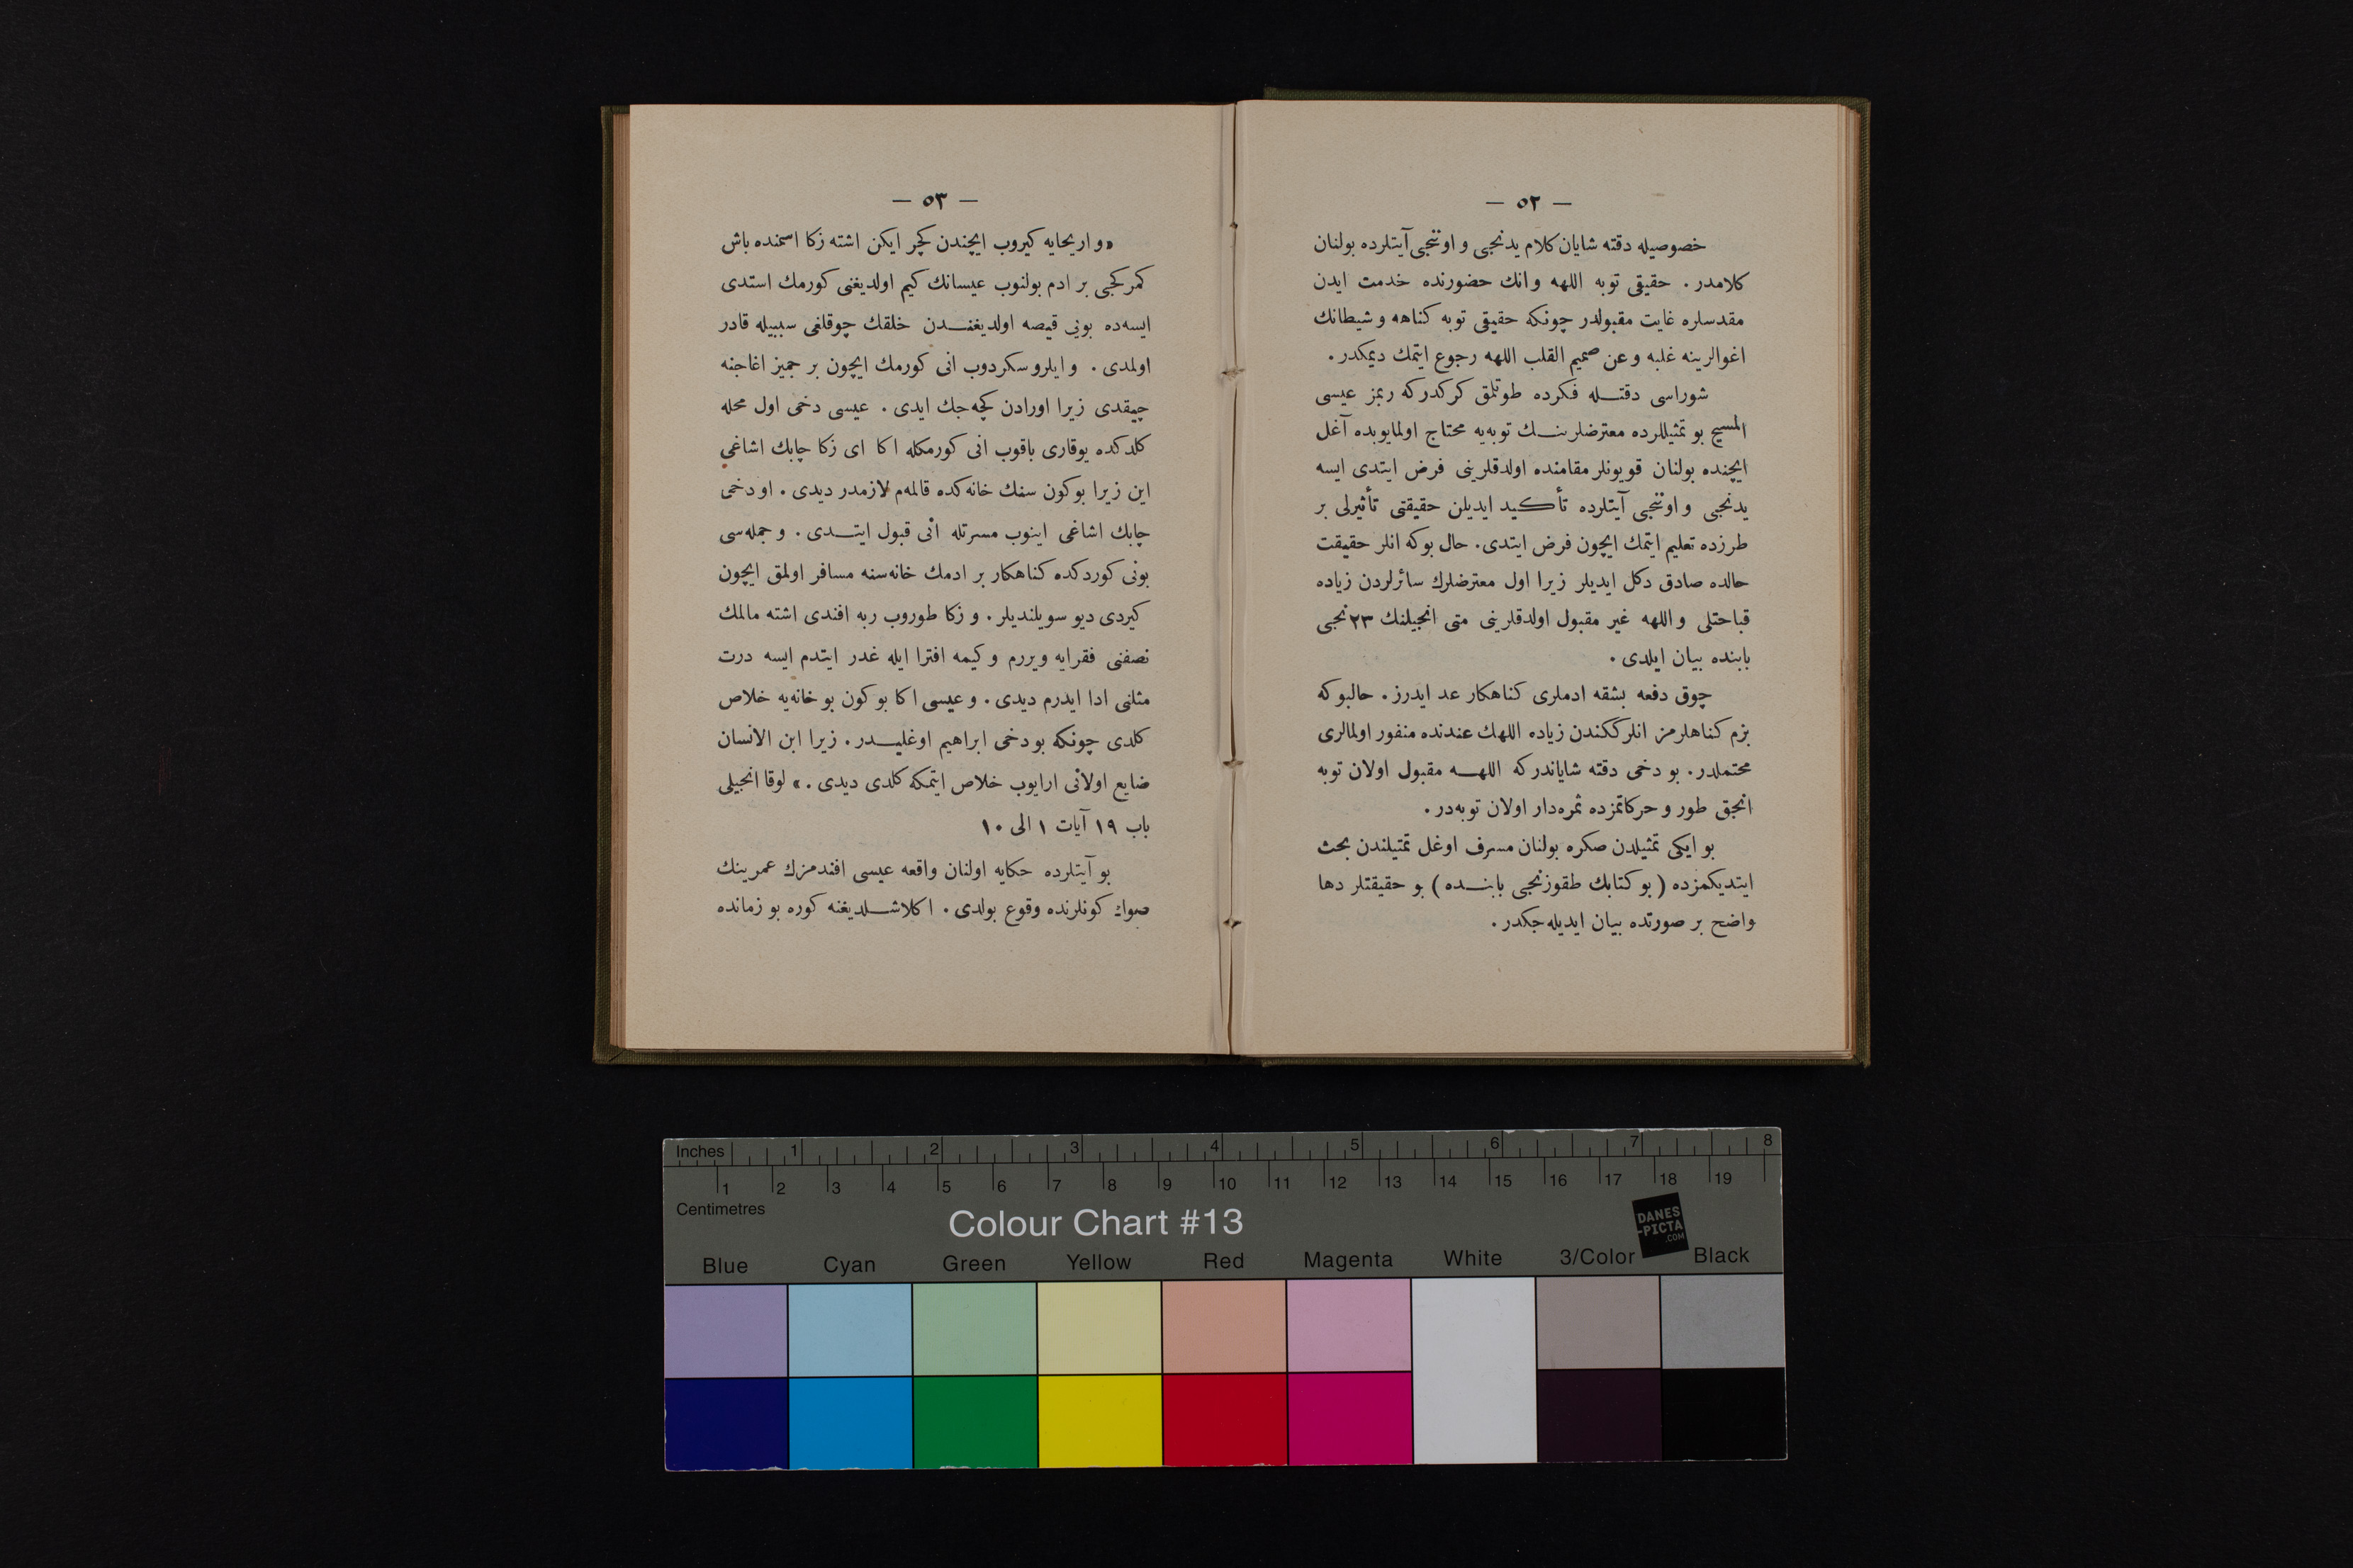 — ٥٢ —
خصوصيله دقته شايان كلام يدنجى و اوننجى آيتلرده بولنان
كلامدر . حقيقى توبه اللهه وانك حضورنده خدمت ايدن
مقدسلره غايت مقبولدر چونكه حقيقى توبه كناهه و شيطانك
اغوالرينه غلبه و عن صميم القلب اللهه رجوع ايتمك ديمكدر .
شوراسى دقتــله فكرده طوتلمق كركدركه ربمز عيسى
المسيح بو تمثيللرده معترضلرينــك توبه‌يه محتاج اولمايوبده آغل
ايچنده بولنان قويونلر مقامنده اولدقلرينى فرض ايتدى ايسه
يدنجى و اوننجى آيتلرده تأكيد ايديلن حقيقتى تأثيرلى بر
طرزده تعليم ايتمك ايچون فرض ايتدى . حال بوكه انلر حقيقت
حالده صادق دكل ايديلر زيرا اول معترضلرك سائرلردن زياده
قباحتلى و اللهه غير مقبول اولدقلرينى متى انجيلنك ٢٣نجى
بابنده بيان ايلدى .
چوق دفعه بشقه ادملرى كناهكار عد ايدرز . حالبوكه
بزم كناهلرمز انلركنكندن زياده اللهك عندنده منفور اولمالرى
محتملدر . بو دخى دقته شاياندركه اللهــه مقبول اولان توبه
انجق طور و حركاتمزده ثمره‌دار اولان توبه‌در .
بو ايكى تمثيلدن صكره بولنان مسرف اوغل تمثيلندن بحث
ايتديكمزده ( بو كتابك طقوزنجى بابنــده ) بو حقيقتلر دها
واضح بر صورتده بيان ايديله‌جكدر .
— ٥٣ —
« و اريحايه كيروب ايچندن كچر ايكن اشته زكا اسمنده باش
كمركجى بر ادم بولنوب عيسانك كيم اولديغنى كورمك استدى
ايسه‌ده بويى قيصه اولديغنــدن خلقك چوقلغى سببيله قادر
اولمدى . و ايلرو سكردوب انى كورمك ايچون بر جميز اغاجنه
چيقدى زيرا اورادن كچه‌جك ايدى . عيسى دخى اول محله
كلدكده يوقارى باقوب انى كورمكله اكا اى زكا چابك اشاغى
اين زيرا بوكون سنك خانه‌كده قالمه‌م لازمدر ديدى . او دخى
چابك اشاغى اينوب مسرتله انى قبول ايتــدى . و جمله‌سى
بونى كوردكده كناهكار بر ادمك خانه‌سنه مسافر اولمق ايچون
كيردى ديو سويلنديلر . و زكا طوروب ربه افندى اشته مالمك
نصفنى فقرايه ويررم و كيمه افترا ايله غدر ايتدم ايسه درت
مثلنى ادا ايدرم ديدى . و عيسى اكا بو كون بو خانه‌يه خلاص
كلدى چونكه بو دخى ابراهيم اوغليــدر . زيرا ابن الانسان
ضايع اولانى ارايوب خلاص ايتمكه كلدى ديدى . » لوقا انجيلى
باب ١٩ آيات ١ الى ١٠
بو آيتلرده حكايه اولنان واقعه عيسى افندمزك عمرينك
صوك كونلرنده وقوع بولدى . اكلاشــلديغنه كوره بو زمانده
Inches 1 2 3 4 5 6 7 8
1 2 3 4 5 6 7 8 9 10 11 12 13 14 15 16 17 18 19
Centimetres
Colour Chart #13
DANES
-PICTA
.COM
Blue Cyan Green Yellow Red Magenta White 3/Color Black